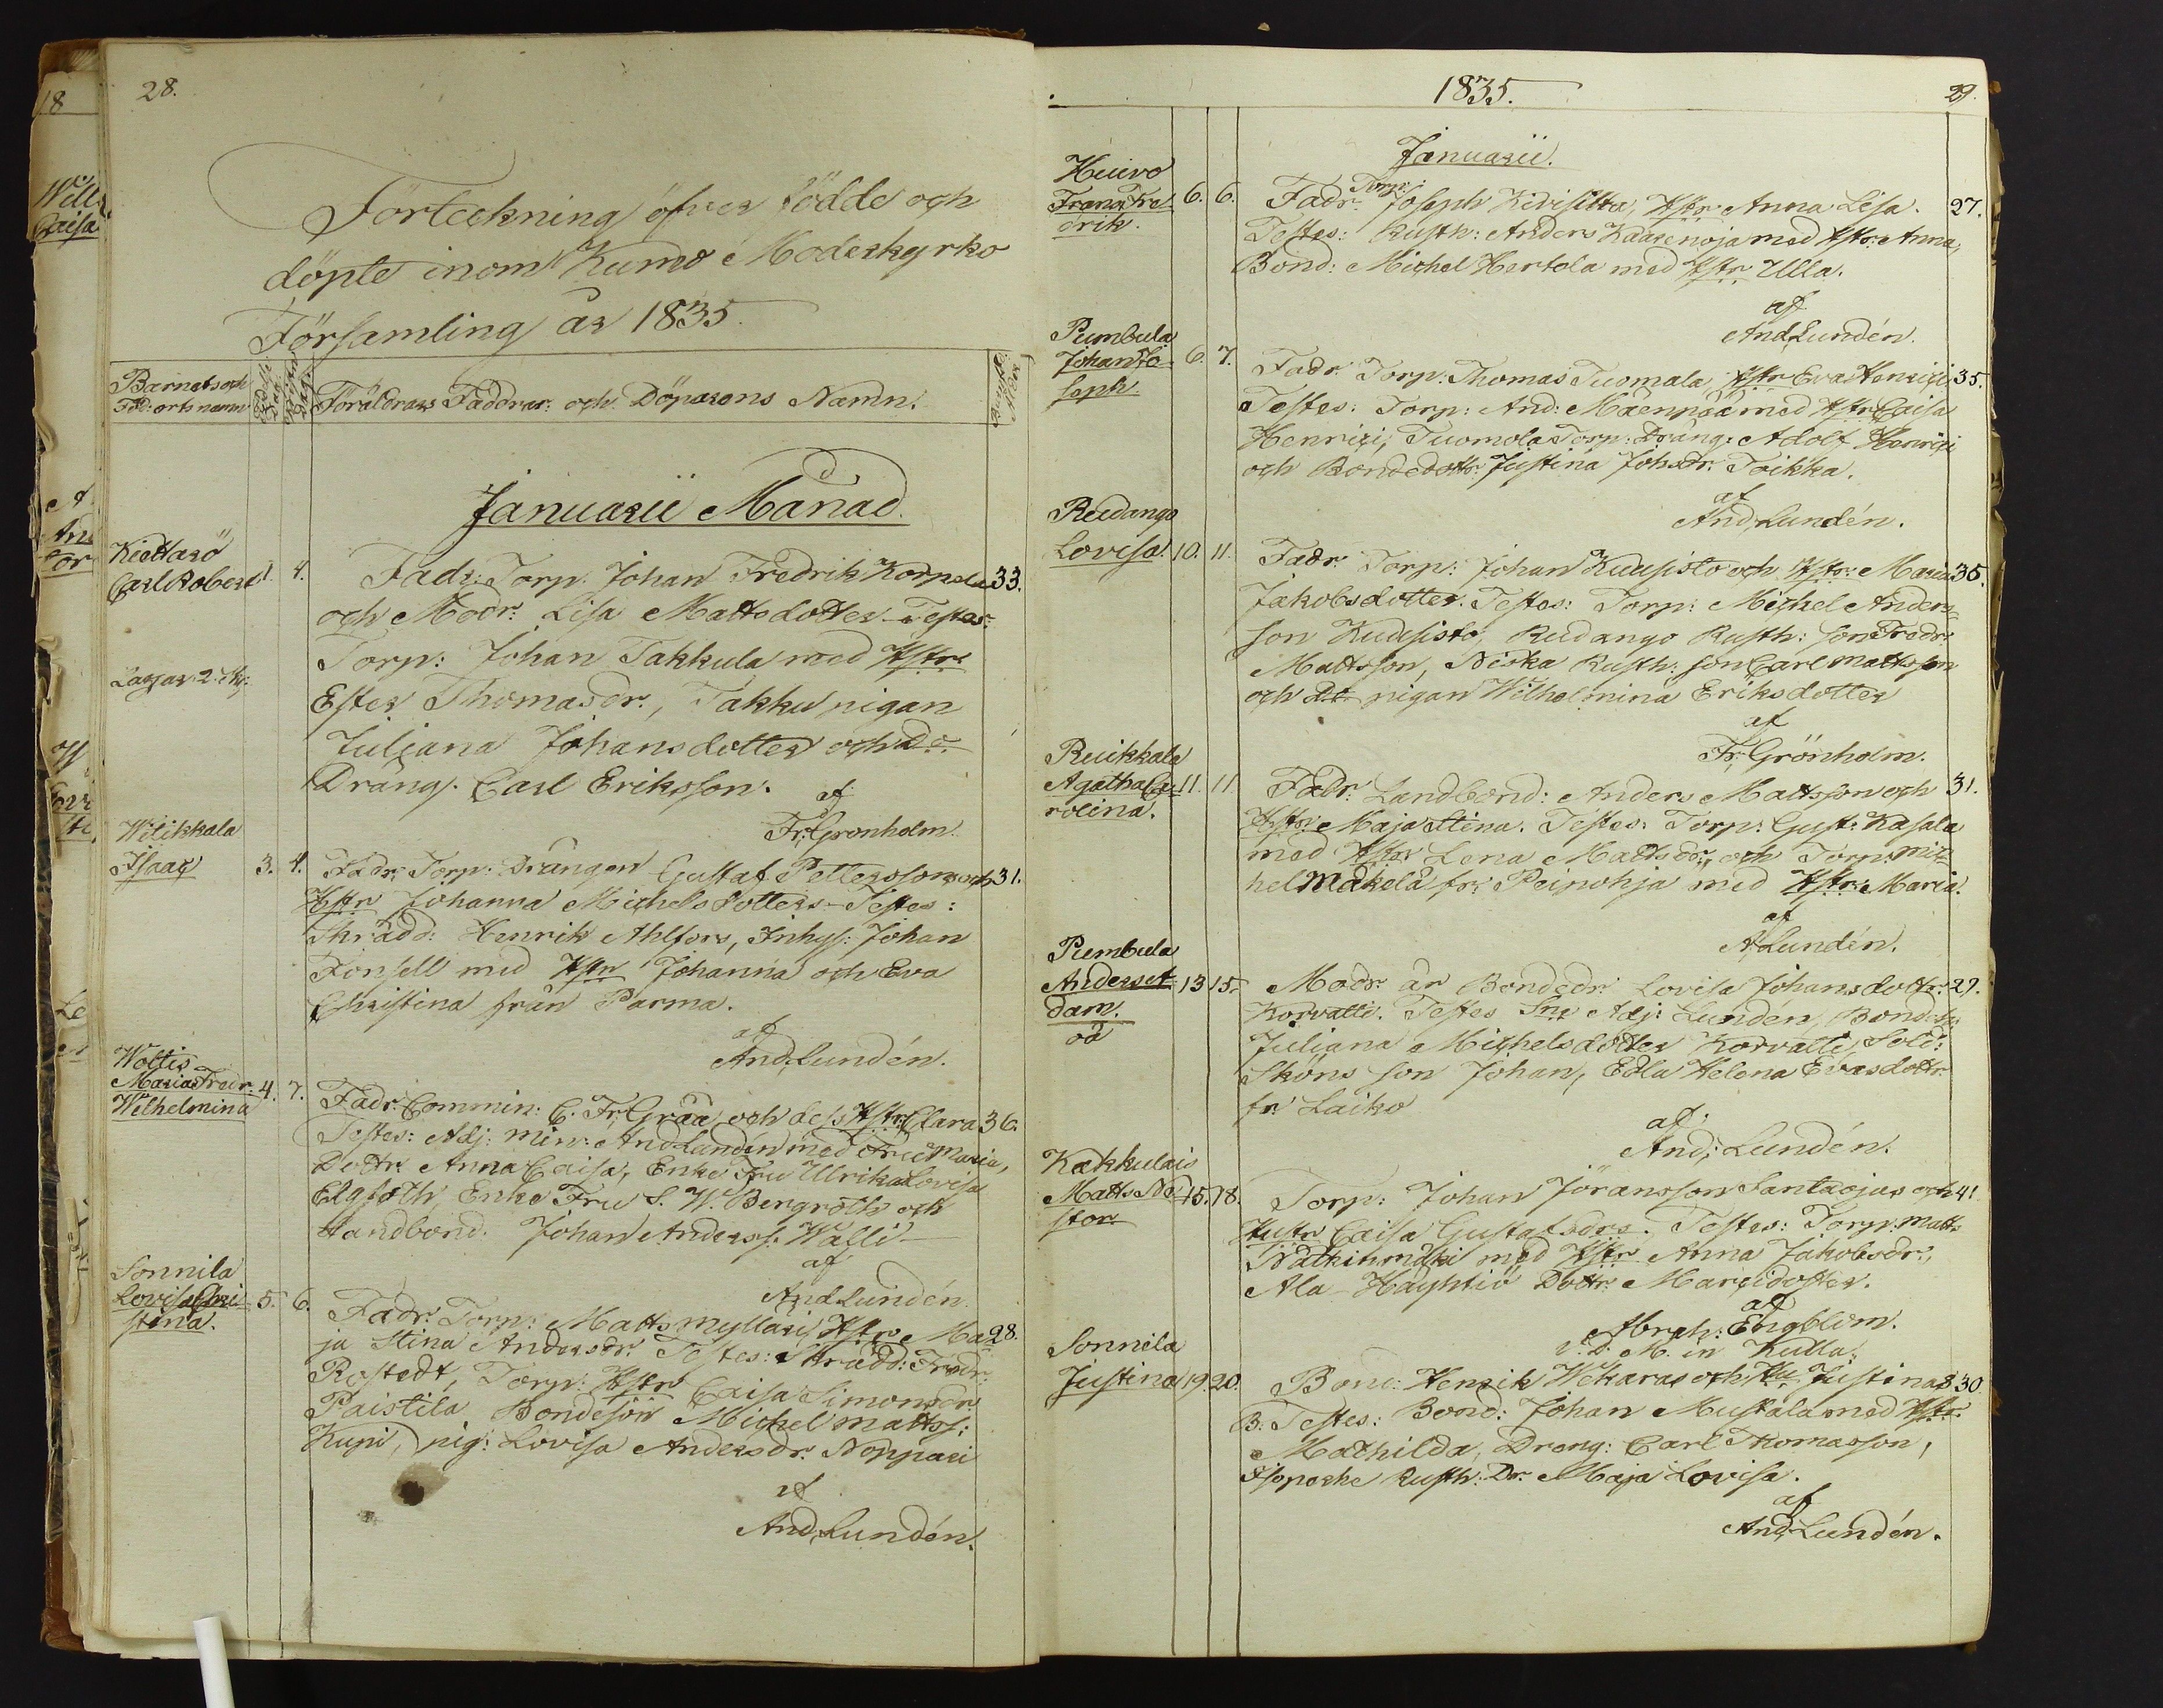 28.
Förteckning öfver födde och
döpte inom Kumo Moderkyrko
Församling år 1835
Barnets och
Föd: orts namn
Födelse
Dag.
Kristnings
Dag.
Föräldrars Faddrar: och Döparens Namn.
Januarii Månad.
Kiettarö
Carl Robert 1. 4. Fadr: Torp: Johan Fredrik Korpela 33.
och Modr: Lisa Mattsdotter Testes:
Torp: Johan Takkula med Hstr:
Lagar 2.
Ester Thomasdr., Takku pigan
Juliana Johansdotter och Do
Dräng. Carl Eriksson.
af
Fr: Grönholm.
Wilikkala
Isaac 3. 4. Fadr: Torp: Drängen Gustaf Pettersson och 31.
Hstr Johanna Michelsdotter Testes:
Skrädd: Henrik Ahlfors, Inhys: Johan
Fonsell med Hstr Johanna och Eva
Christina från Parma.
af
And. Lundén.
Woltis
Maria Fredr.
Wilhelmina 4. 7. Fadr: Commin: C. Fr. Gråå och dess Hstr: Clara 36.
Testes: Adj: min: And Lundén med Fru Maria,
Dottr: Anna Caisa, Enke Fru Ulrika Lovisa
Elgfoth, Enke Fru S. W. Bergroth och
Landbond. Johan Anderss: Walli
af
And Lundén.
Sonnila
Lovisa Chri-
stina. 5. 6. Fadr: Torp: Matts Myllari, Hstr: Ma 28.
ja Stina Andersdr: Testes: Skrädd: Fredr:
Rostedt, Torp: Hstr Caisa Simonsdr
Paistila Bondeson Michel Mattss:
Kupi, pig: Lovisa Andersdr. Noppari
af
And. Lundén.
1835. 29.
Januarii.
Huivo
Frans Fre
drik. 6. 6. Fadr. Torp: Joseph Kivisilta, Hstr: Anna Lisa. 27.
Testes: Rusth: Anders Kaarenoja med Hstr: Anna,
Bond: Michel Hertola med Hstr Ulla.
af
And Lundén.
Pumbula
Johan Jo-
seph. 6. 7. Fadr. Torp: Thomas Tuomala Hstr Eva Henrici 35.
Testes: Torp: And: Mäenpää med Hstr Caisa
Henrici, Tuomola Torp: Dräng: Adolf Henrici
och Bondedottr: Justina Johsdr. Toikka.
af
And. Lundén.
Rudango
Lovisa. 10. 11. Fadr. Torp: Johan Kuusisto och Hstr: Maria 35.
Jakobsdotter. Testes: Torp: Michel Anders
son Kuusisto, Rudango Rusth: son Fredr:
Mattsson, Niska Rusth: son Carl Mattsson
och Do pigan Wilhelmina Eriksdotter
af
Fr: Grönholm.
Ruikkala
Agatha Ca-
rolina. 11. 11. Fadr. Landbond: Anders Mattsson och 31.
Hstr: Maja Stina. Testes: Torp: Gust: Kasala
med Hstr Lena Mattsdr: och Torp: Mic
hel Mäkelä fr: Peipohja med Hstr: Maria.
af
A. Lundén.
Pumbula
Anders A-
dam.
oä 13 15. Modr. är Bondedr: Lovisa Johansdottr: 29.
Korvatti. Testes Adj: Lundén, Bond:
Juliana Michelsdotter Korvatti, Sold:
Sköns son Johan, Edla Helena Evasdottr
fr: Laiko
af
And. Lundén.
Kakkulais
Matts Ne-
stor. 15. 18. Torp: Johan Jöransson Santaojas och 41.
Hustr Caisa Gustafsdr. Testes: Torp: Matts
Nälkihmäki med Hstr Anna Jakobsdr.,
Ala Häyhtiö Dottr: Marcidotter.
af
Abrah: Engblom.
V. D. M. in Kulla.
Sonnila
Justina 19. 20. Bond: Henrik Wekara och Hu Justina 30
B. Testes: Bond: Johan Mustala med Hstr:
Mathilda, Dräng: Carl Thomasson,
Rusth: Dr. Maja Lovisa.
af
And Lundén.